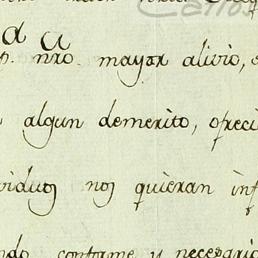 p. nro. mayor alivio,
algun demerito, ofreci
viduos nos quieran inf
ndo conforme y necesario